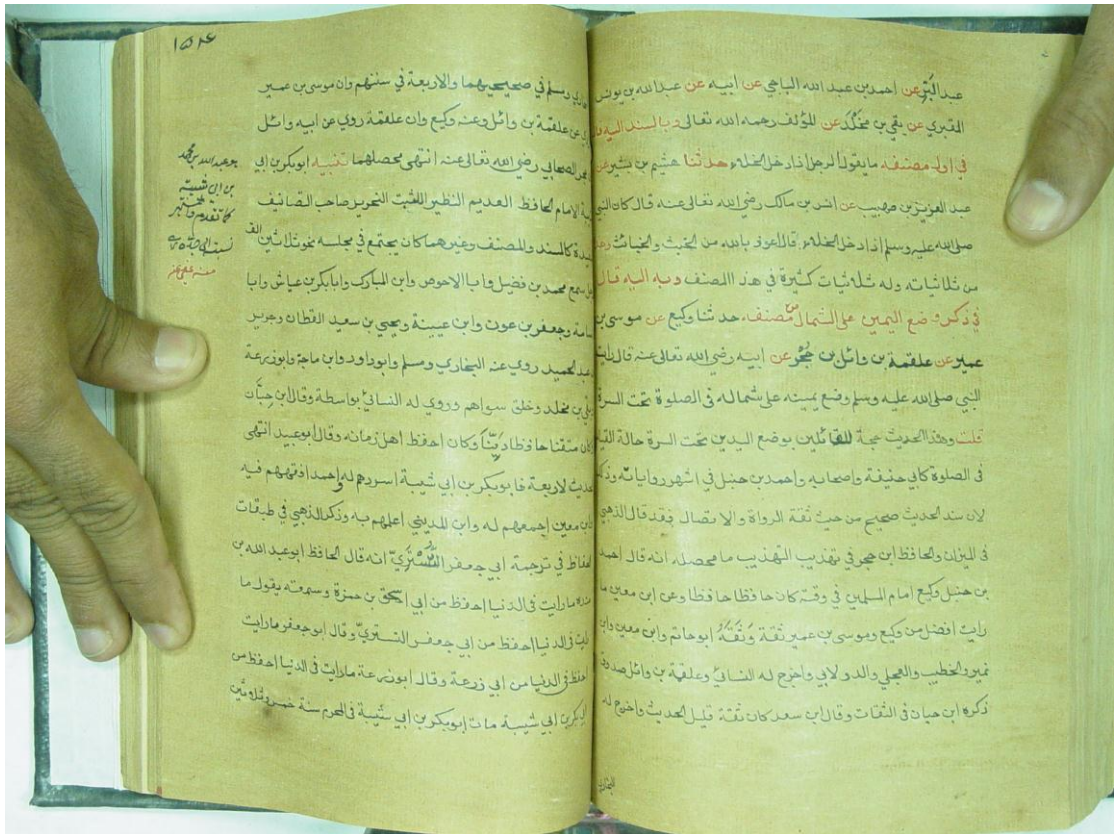 عبد البر عن احمد بن عبد الله الباجي عن ابيه عن عبد الله بن يونس
القبري عن بقي بن مخلد عن المؤلف رحمه الله تعالى وبالسند اليه
في اول مصنفه ما يقول الرجل اذا دخل الخلاء حدثنا هشيم بن بشير عن
عبد العزيز بن صهيب عن انس بن مالك رضي الله تعالى عنه قال كان النبي
صلى الله عليه وسلم اذا دخل الخلاء قال اعوذ بالله من الخبث والخبائث
من ثلاثياته وله ثلاثيات كثيرة في هذا المصنف وبه اليه قال
في ذكر وضع اليمين على الشمال من مصنفه حدثنا وكيع عن موسى بن
عمير عن علقمة بن وائل بن حُجْر عن ابيه رضي الله تعالى عنه قال رايت
النبي صلى الله عليه وسلم وضع يمينه على شماله في الصلوة تحت السرة
قلت وهذا الحديث حجة للقائلين بوضع اليدين تحت السرة حالة
في الصلوة كابي حنيفة واصحابه واحمد بن حنبل في اشهر رواياته
لان سند الحديث صحيح من حيث ثقة الرواة والاتصال فقد قال الذهبي
في الميزان والحافظ ابن حجر في تهذيب التهذيب ما محصله انه قال احمد
بن حنبل وكيع امام المسلمين في وقته كان حافظا حافظا وعن ابن معين ما
رايت افضل من وكيع وموسى بن عمير ثقة وَثَّقَهُ ابو حاتم وابن معين وابن
نمير والخطيب والعجلي والدولابي واخرج له النسائي وعلقمة بن وائل صدوق
ذكره ابن حبان في الثقات وقال ابن سعد كان ثقة قليل الحديث واخرج له
البخاري
١٥٤
ومسلم في صحيحيهما والاربعة في سننهم وان موسى بن عمير
عن علقمة بن وائل وعنه وكيع وان علقمة روي عن ابيه وائل
الصحابي رضي الله تعالى عنه انتهى محصلهما تنبيه ابو بكر بن ابي
الامام الحافظ العديم النظير الثبت النحرير صاحب التصانيف
كالمسند والمصنف وغيرهما كان يجتمع في مجلسه نحو ثلاثين الف
سمع محمد بن فضيل وابا الاحوص وابن المبارك وابا بكر بن عياش وابا
وجعفر بن عون وابن عيينة ويحيى بن سعيد القطان وجرير
عبد الحميد روي عنه البخاري ومسلم وابو داود وابن ماجة وابو زرعة
وبقي بن مخلد وخلق سواهم وروي له النسائي بواسطة وقال ابن حِبَّان
كان متقنا حافظا دَيِّنًا وكان احفظ اهل زمانه وقال ابو عبيد انتهى
الحديث لاربعة فابو بكر بن ابي شيبة اسردهم له واحمد افقههم فيه
وابن معين اجمعهم له وابن المديني اعلمهم به وذكر الذهبي في طبقات
الحفاظ في ترجمة ابي جعفر التُّسْتَرِيّ انه قال الحافظ ابو عبد الله بن
منده ما رايت في الدنيا احفظ من ابي اسحق بن حمزة وسمعته يقول ما
رايت في الدنيا احفظ من ابي جعفر التستريّ وقال ابو جعفر ما رايت
احفظ في الدنيا من ابي زرعة وقال ابو زرعة ما رايت في الدنيا احفظ من
ابي بكر بن ابي شيبة مات ابو بكر بن ابي شيبة في المحرم سنة خمس وثلاثين
بو عبد الله بن محمد
بن ابي شيبة
كما تقدم
نسبته الى جده
منه عفي عنه